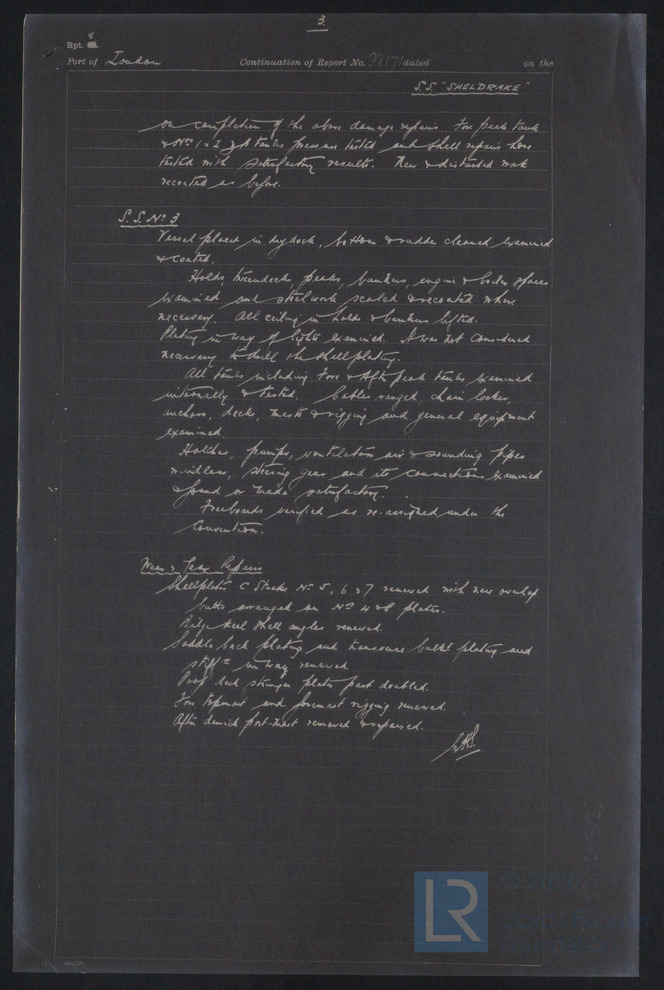 3.
Rpt. 8
Port of London Continuation of Report No. dated on the
S.S. "SHELDRAKE"
on completion of the above damage repairs Fore peak tank
& Nos 1 & 2 tanks pressure tested and shell repairs hose
tested with satisfactory results. New & disturbed work
recoated as before.
S.S. No 3
Vessel placed in drydock, bottom & rudder cleaned examined
& coated.
Holds, tweendecks, peaks, bunkers, engine & boiler spaces
examined and steelwork scaled & recoated where
necessary. All ceiling in holds & bunkers lifted.
Plating in way of lights examined. It was not considered
necessary to drill the shellplating.
All tanks including Fore & Aft peak tanks examined
internally & tested. Cables ranged, chain locker,
anchors, decks, masts & rigging and general equipment
examined.
Hatches, pumps, ventilators air & sounding pipes
windlass, steering gear and its connections examined
& found or made satisfactory.
Freeboards verified as re-assigned under the
Convention.
Wear & Tear Repairs
Shellplates C Strake No 5, 6 & 7 renewed with new overlap
butts arranged on Nos 4 & 8 plates.
Bilge keel shell angles renewed.
Saddle back plating and transverse bulkd plating and
stiffrs in way renewed.
Poop deck stringer plates part doubled.
Fore topmast and foremast rigging renewed.
After derrick post-mast removed & repaired.
LR